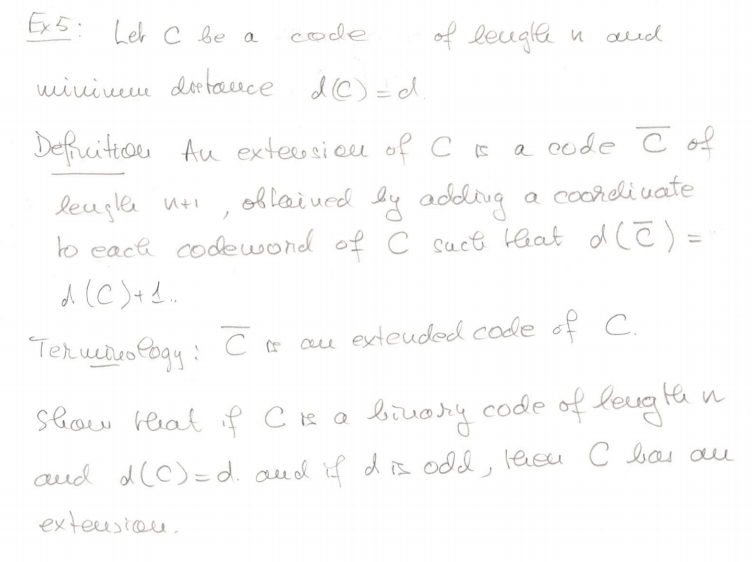 Ex5: Let C be a code of length n and
minimum distance d(C)=d.
Definition An extension of C is a code C̅ of
length n+1, obtained by adding a coordinate
to each codeword of C such that d(C̅) =
d(C)+1..
Terminology: C̅ is an extended code of C.
Show that if C is a binary code of length n
and d(C)=d. and if d is odd, then C has an
extension.